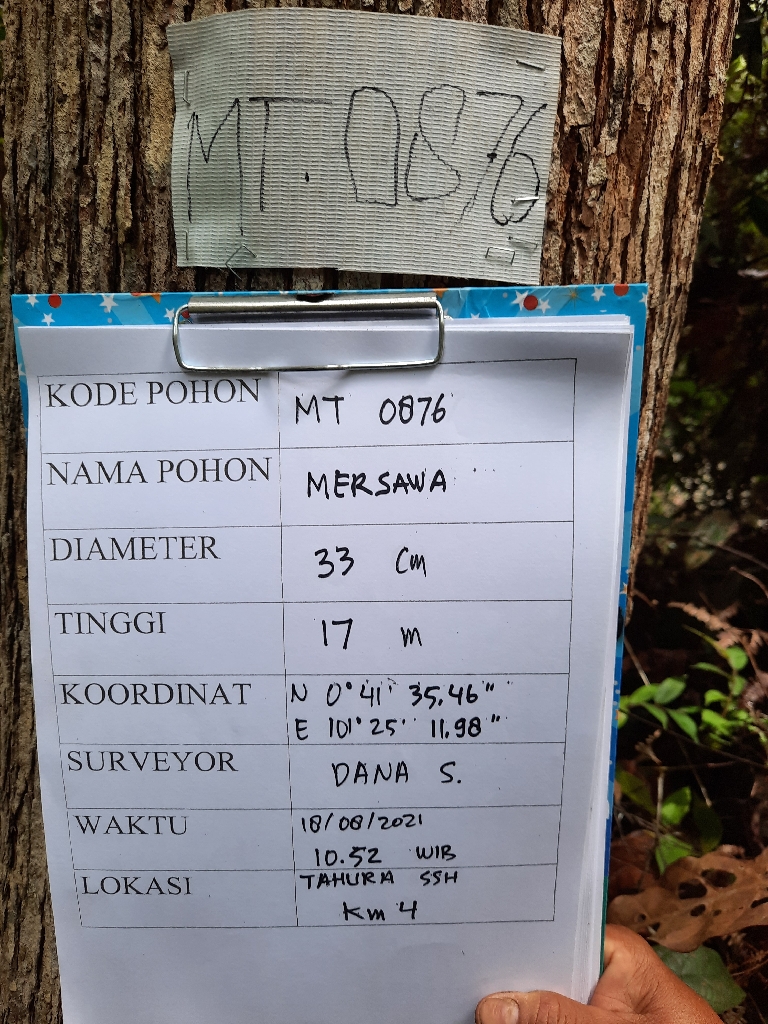 MT. 0876
KODE POHON MT 0876
NAMA POHON MERSAWA
DIAMETER 33 Cm
TINGGI 17 m
KOORDINAT N 0° 41' 35.46"
E 101° 25' 11.98"
SURVEYOR DANA S.
WAKTU 18/08/2021
10.52 WIB
LOKASI TAHURA SSH
Km 4